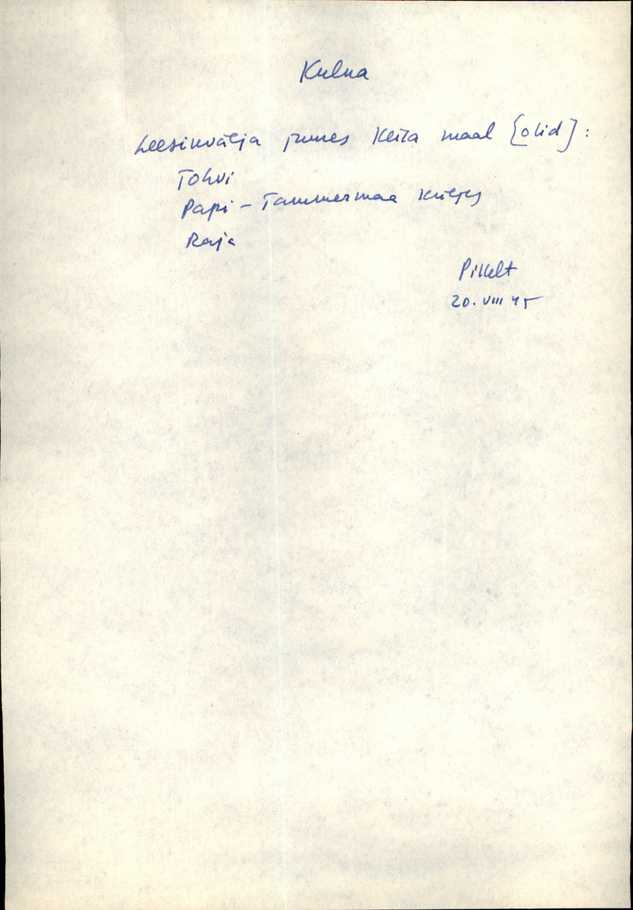 Kulna
Leesinvälja juures Keila maal [olid]:
Tohvi
Papi - Tammermaa küljes
Raja
Pikelt
20. VIII 45